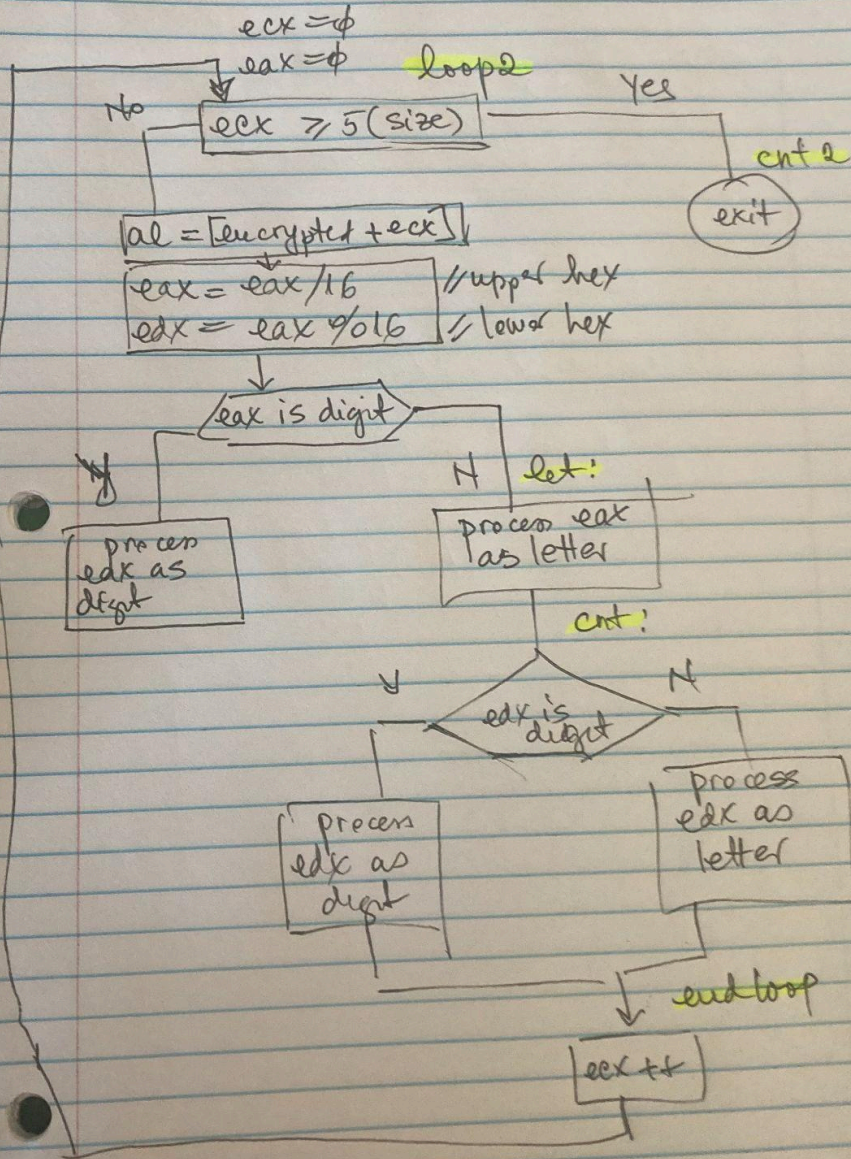 ecx = ϕ
eax = ϕ
loop2
No
Yes
ecx ⩾ 5 (size)
cnt 2
exit
al = [encrypted + ecx]
eax = eax /16 // upper hex
edx = eax %16 // lower hex
eax is digit
Y
N
let:
process
edx as
digit
process eax
as letter
cnt:
Y
N
edx is
digit
process
edx as
digit
process
edx as
letter
end loop
ecx ++